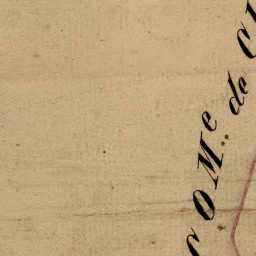 COM.e de C